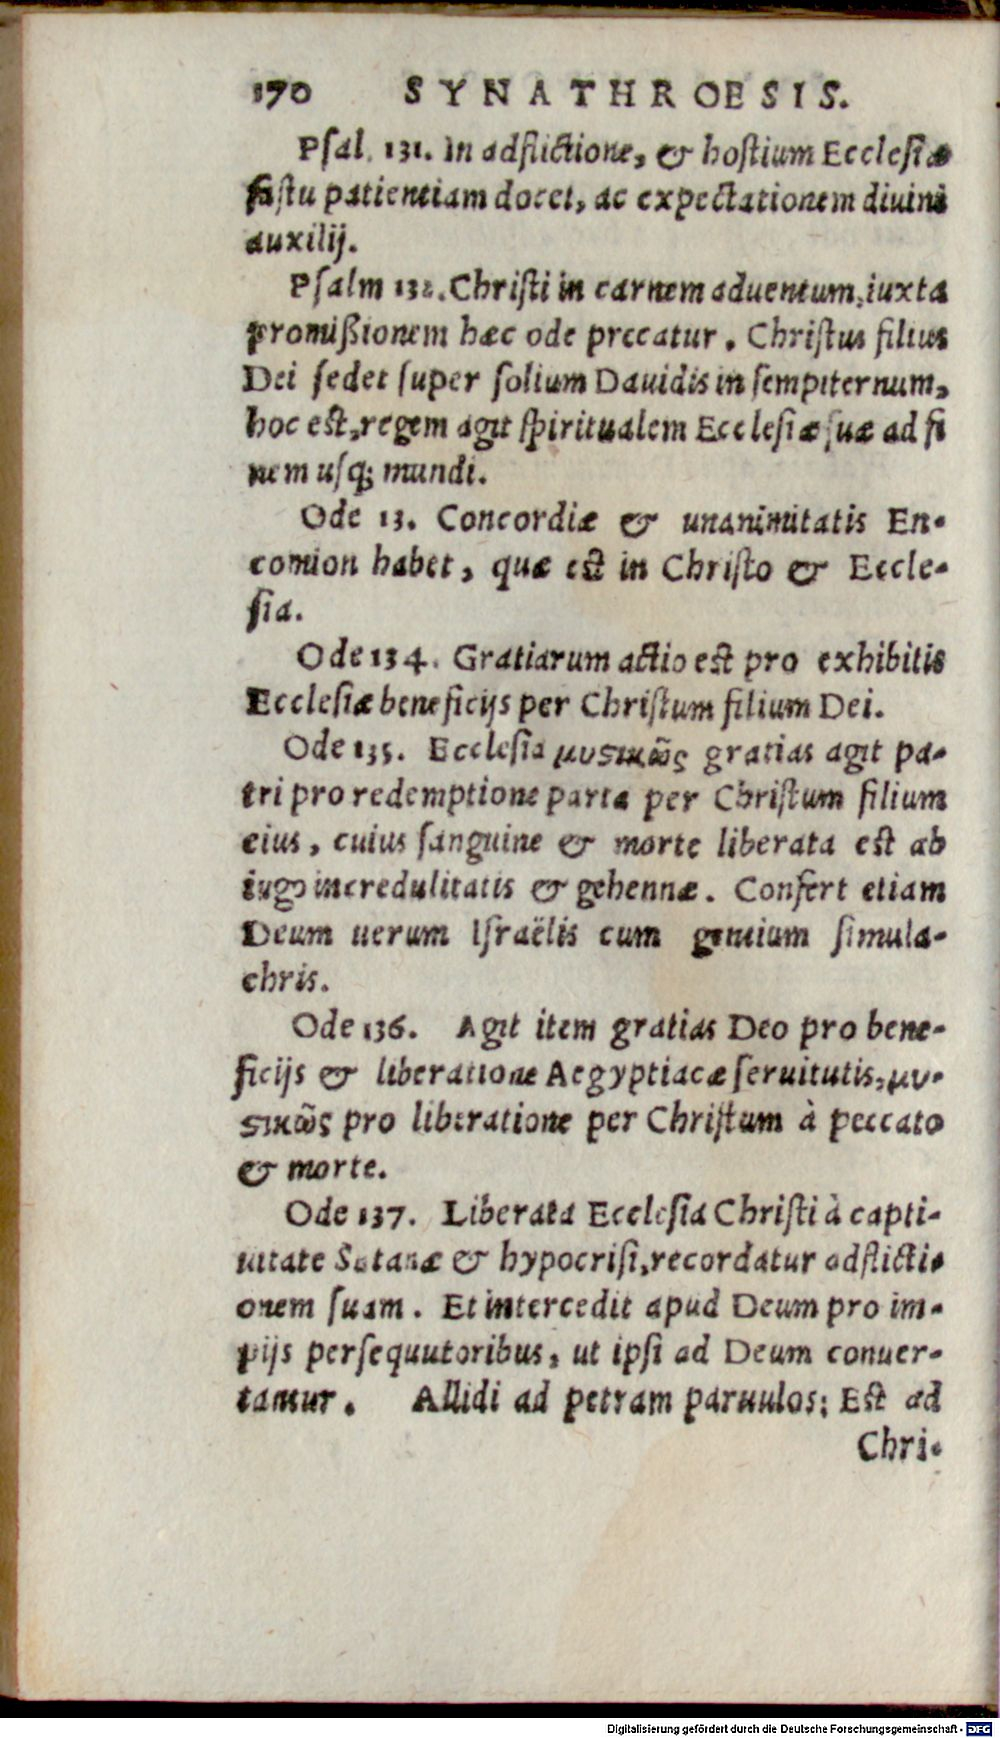 170 SYNATHROESIS.
Psal. 131. In adflictione, & hostium Ecclesiæ
fastu patientiam docet, ac expectationem diuini
auxilij.
Psalm 132. Christi in carnem aduentum, iuxta
promißionem hæc ode precatur. Christus filius
Dei sedet super solium Dauidis in sempiternum,
hoc est, regem agit spiritualem Ecclesiæ suæ ad fi
nem usq; mundi.
Ode 13. Concordiæ & unanimitatis En-
comion habet, quæ est in Christo & Eccle-
sia.
Ode 134. Gratiarum actio est pro exhibitis
Ecclesiæ beneficijs per Christum filium Dei.
Ode 135. Ecclesia μυςικῶς gratias agit pa-
tri pro redemptione parta per Christum filium
eius, cuius sanguine & morte liberata est ab
iugo incredulitatis & gehennæ. Confert etiam
Deum uerum Israëlis cum gentium simula-
chris.
Ode 136. Agit item gratias Deo pro bene-
ficijs & liberatione Aegyptiacæ seruitutis, μυ-
ςικῶς pro liberatione per Christum à peccato
& morte.
Ode 137. Liberata Ecclesia Christi à capti-
uitate Satanæ & hypocrisi, recordatur adflicti-
onem suam. Et intercedit apud Deum pro im-
pijs persequutoribus, ut ipsi ad Deum conuer-
tantur. Allidi ad petram paruulos; Est ad
Chri-
Digitalisierung gefördert durch die Deutsche Forschungsgemeinschaft - DFG